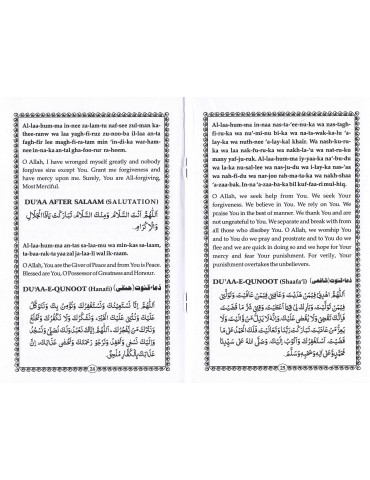 Al-laa-hum-ma in-nee za-lam-tu naf-see zul-man ka-
thee-runw wa laa yagh-fi-ruz zu-noo-ba il-laa an-ta
fagh-fir lee magh-fi-ra-tam min 'in-di-ka war-ham-
nee in-na-ka an-tal gha-foo-rur ra-heem.
O Allah, I have wronged myself greatly and nobody
forgives sins except You. Grant me forgiveness and
have mercy upon me. Surely, You are All-forgiving,
Most Merciful.
DU'AA AFTER SALAAM (SALUTATION)
اَللّٰهُمَّ اَنْتَ السَّلَامُ وَمِنْكَ السَّلَامُ تَبَارَكْتَ يَاذَا الْجَلَالِ
وَالْاِكْرَامِ.
Al-laa-hum-ma an-tas sa-laa-mu wa min-kas sa-laam,
ta-baa-rak-ta yaa zal ja-laa-li wal ik-raam.
O Allah, You are the Giver of Peace and from You is Peace.
Blessed are You, O Possessor of Greatness and Honour.
DU'AA-E-QUNOOT (Hanafi) (دعاء قنوت (حنفی
اَللّٰهُمَّ اِنَّا نَسْتَعِيْنُكَ وَنَسْتَغْفِرُكَ وَنُؤْمِنُ بِكَ وَنَتَوَكَّلُ
عَلَيْكَ وَنُثْنِيْ عَلَيْكَ الْخَيْرَ وَنَشْكُرُكَ وَلَا نَكْفُرُكَ وَنَخْلَعُ
وَنَتْرُكُ مَنْ يَّفْجُرُكَ اَللّٰهُمَّ اِيَّاكَ نَعْبُدُ وَلَكَ نُصَلِّيْ وَنَسْجُدُ
وَاِلَيْكَ نَسْعٰى وَنَحْفِدُ وَنَرْجُوْ رَحْمَتَكَ وَنَخْشٰى عَذَابَكَ اِنَّ
عَذَابَكَ بِالْكُفَّارِ مُلْحِقٌ.
24
Al-laa-hum-ma in-naa nas-ta-'ee-nu-ka wa nas-tagh-
fi-ru-ka wa nu'-mi-nu bi-ka wa na-ta-wak-ka-lu 'a-
lay-ka wa nuth-nee 'a-lay-kal khair. Wa nash-ku-ru-
ka wa laa nak-fu-ru-ka wa nakh-la-'u wa nat-ru-ku
many yaf-ju-ruk. Al-laa-hum-ma iy-yaa-ka na'-bu-du
wa la-ka nu-sal-lee wa nas-ju-du wa i-lay-ka nas-'aa
wa nah-fi-du wa nar-joo rah-ma-ta-ka wa nakh-shaa
'a-zaa-bak. In-na 'a-zaa-ba-ka bil kuf-faa-ri mul-hiq.
O Allah, we seek help from You. We seek Your
forgiveness. We believe in You. We rely on You. We
praise You in the best of manner. We thank You and are
not ungrateful to You. We separate and break with from
all those who disobey You. O Allah, we worship You
and to You do we pray and prostrate and to You do we
flee and we are quick in doing so and we hope for Your
mercy and fear Your punishment. For verily, Your
punishment overtakes the unbelievers.
DU'AA-E-QUNOOT (Shaafi'i) (دعاء قنوت (شافعی
اَللّٰهُمَّ اهْدِنِيْ فِيْمَنْ هَدَيْتَ وَعَافِنِيْ فِيْمَنْ عَافَيْتَ وَتَوَلَّنِيْ
فِيْمَنْ تَوَلَّيْتَ وَبَارِكْ لِيْ فِيْمَا اَعْطَيْتَ وَقِنِيْ شَرَّ مَا قَضَيْتَ
فَاِنَّكَ تَقْضِيْ وَلَا يُقْضٰى عَلَيْكَ وَاِنَّهُ لَا يَذِلُّ مَنْ وَّالَيْتَ وَلَا
يَعِزُّ مَنْ عَادَيْتَ تَبَارَكْتَ رَبَّنَا وَتَعَالَيْتَ فَلَكَ الْحَمْدُ عَلٰى مَا
قَضَيْتَ اَسْتَغْفِرُكَ وَاَتُوْبُ اِلَيْكَ وَصَلَّى اللّٰهُ عَلٰى سَيِّدِنَا
مُحَمَّدٍ وَّاٰلِهٖ وَصَحْبِهٖ وَسَلَّمَ.
25